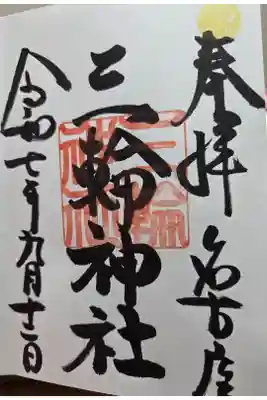 奉拝 名古屋
三輪神社
令和七年九月十二日